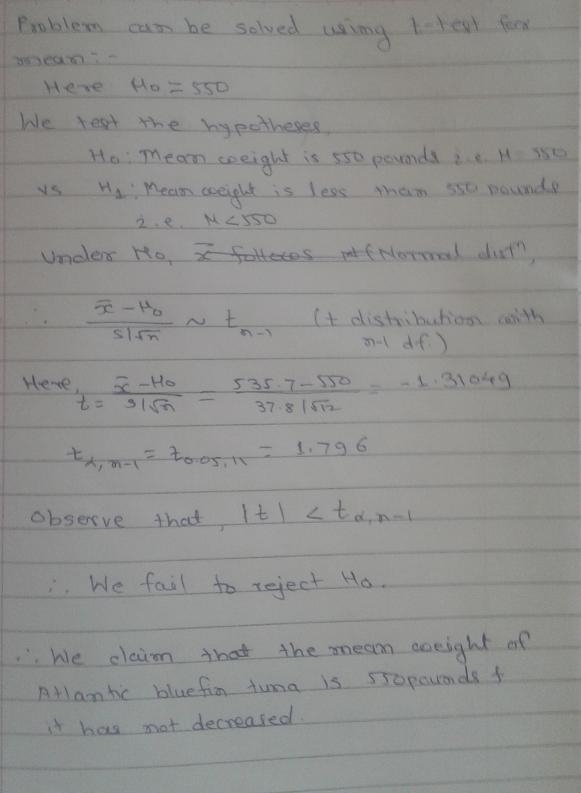 Problem can be solved using t-test for
mean:-
Here μ₀ = 550
We test the hypotheses,
H₀: Mean weight is 550 pounds i.e. μ = 550
vs H₁: Mean weight is less than 550 pounds
i.e. μ < 550
Under H₀, x̄ follows Normal distⁿ,
∴ (x̄ - μ₀)/(s/√n) ~ t_{n-1} (t distribution with
n-1 df.)
Here,
t = (x̄ - μ₀)/(s/√n) = (535.7 - 550)/(37.8/√12) = -1.31049
t_{α, n-1} = t_{0.05, 11} = 1.796
Observe that, |t| < t_{α, n-1}
∴ We fail to reject H₀.
∴ We claim that the mean weight of
Atlantic bluefin tuna is 550 pounds &
it has not decreased.